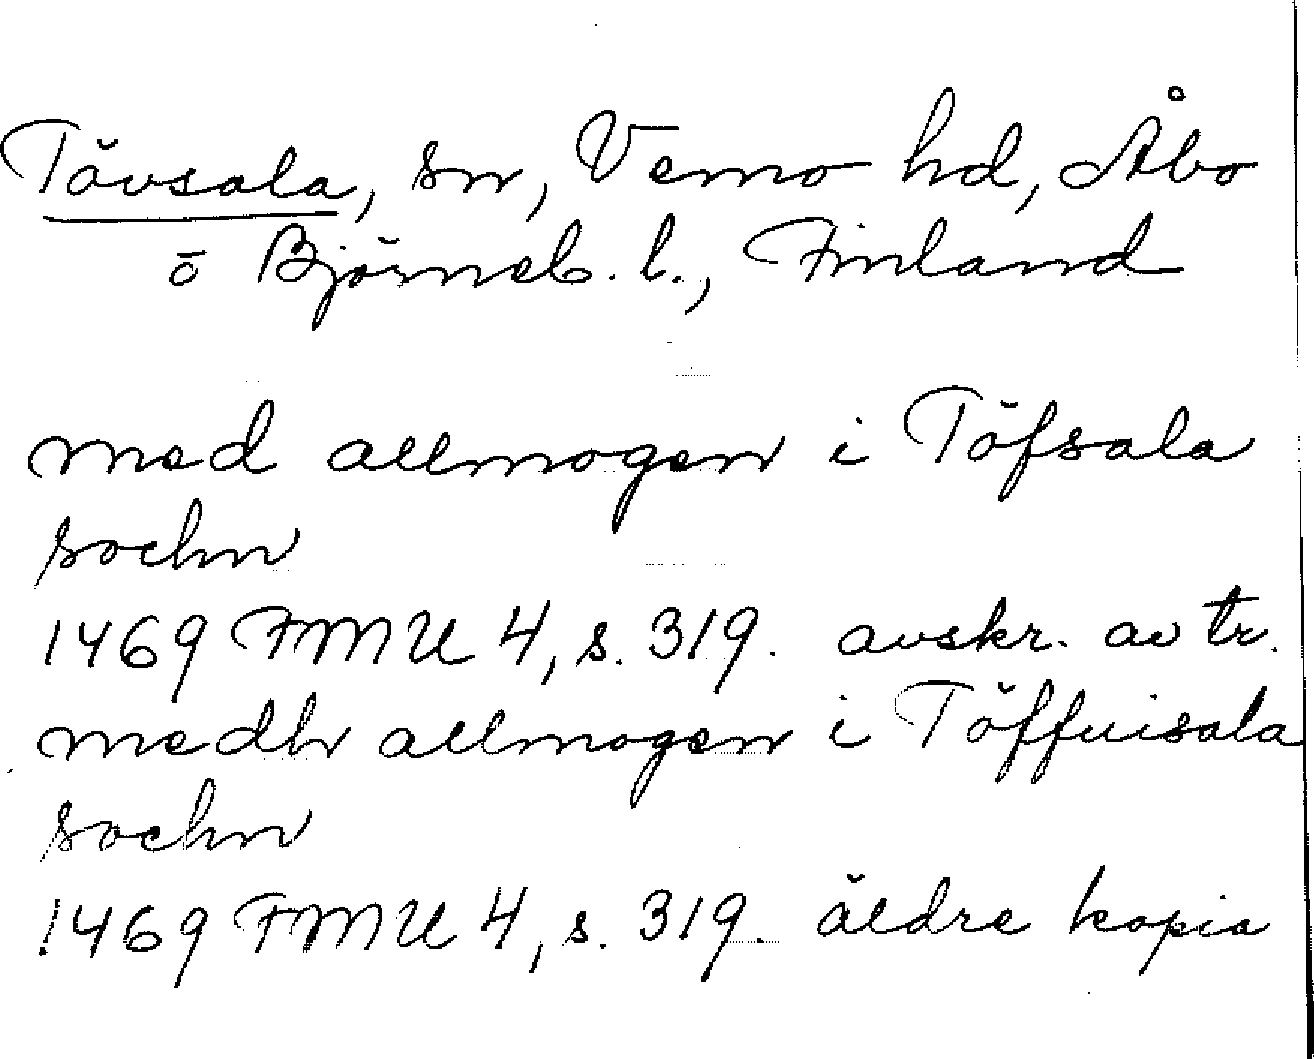 Tövsala, sn, Vemo hd, Åbo
o Björneb. l., Finland
med allmogen i Töfsala
sochn
1469 FMU 4, s. 319. avskr. av tr.
medh allmogen i Töffuisala
sochn
1469 FMU 4, s. 319. äldre kopia